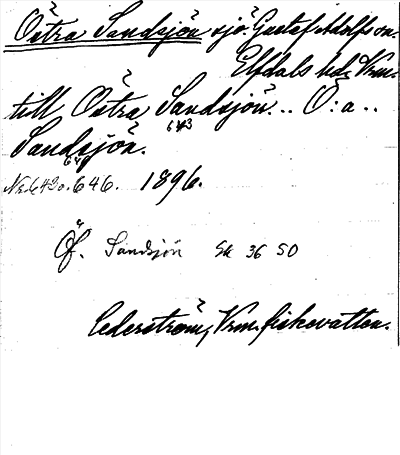 Östra Sandsjön sjö. Gustaf Adolfs sn.
Elfdals hd, Vrm.
till Östra Sandsjön.. Ö:a..
643
Sandsjön.
646
Nr 643 o. 646. 1896.
Öf. Sandsjön Sk 36 50
Cederström, Vrm. fiskevatten.